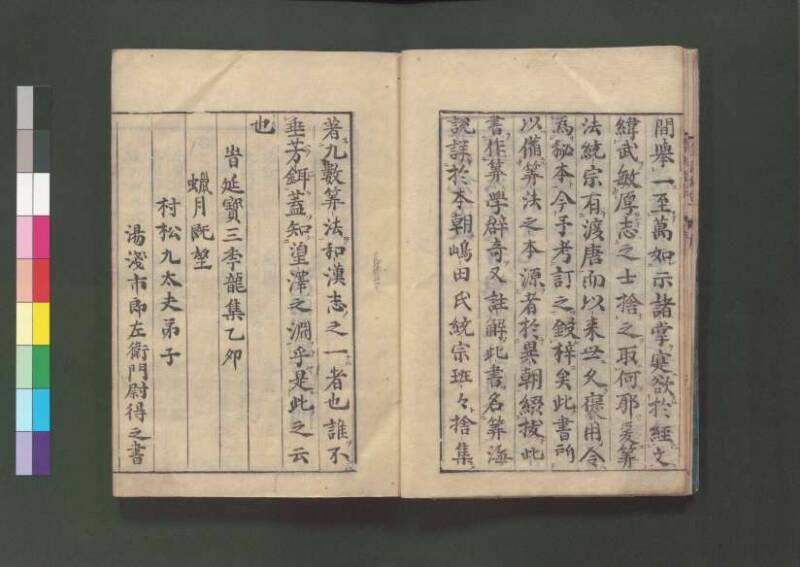 間擧一至萬如示諸掌寔欲於經文
緯武敏厚志之士捨之取何耶爰算
法統宗有渡唐而以来世久寝用令
為秘本今予考訂之鋟梓矣此書所
以備算法之本源者於異朝綴拔此
書作算學辟奇又註解此書名算海
説某於本朝嶋田氏統宗班々捨集
著九數算法和漢志之一者也誰不
垂芳餌蓋知湟澤之淵乎是此之云
也
旹延寳三季龍集乙卯
蠟月既望
村松九太夫弟子
湯淺市郎左衛門尉得之書